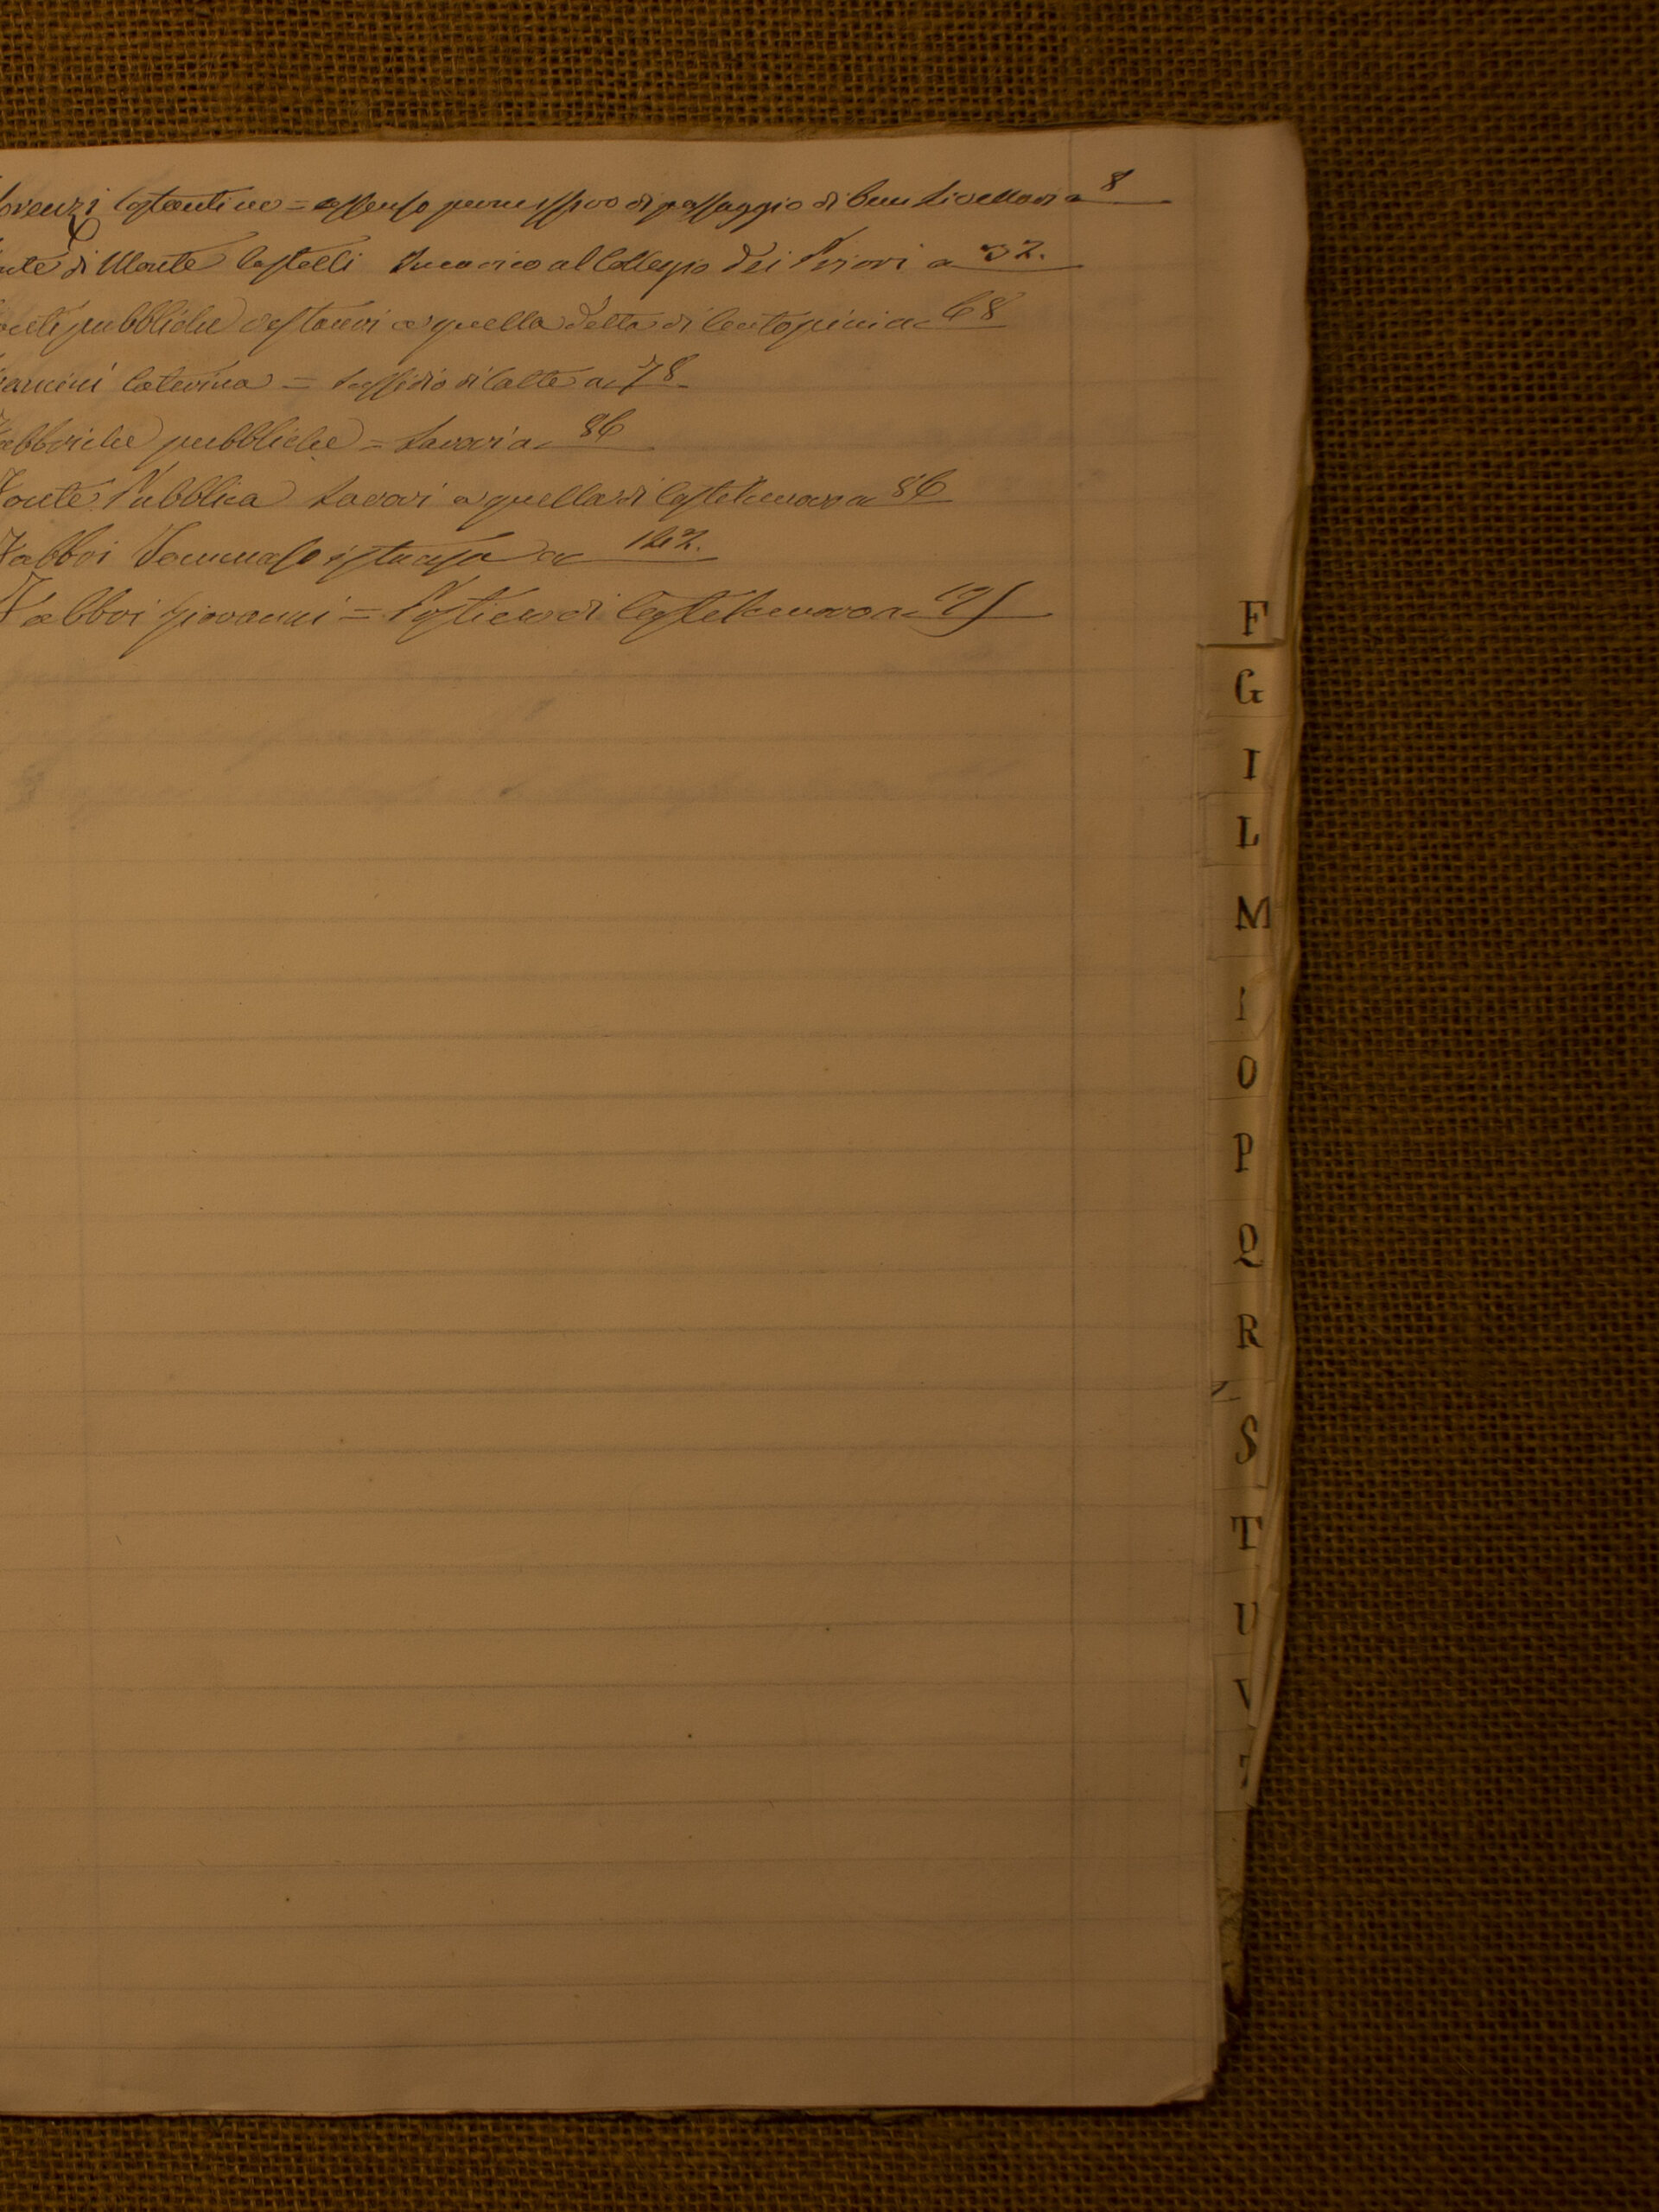 orenzi Costantino = assenso permissivo di passaggio di beni Livellari a 8
nte di Monte Castelli Incarico al Collegio dei Priori a 32.
onti pubbliche restauri a quella detta di a 68
Caterina = sussidio di latte a 78
abbriche pubbliche = Lavori a 86
Fonte Pubblica Lavori a quella di Castelnuovo a 86
Fabbri Tommaso istanza a 142.
Fabbri Giovanni = Postiere di Castelnuovo a
F
G
I
L
M
O
P
Q
R
S
T
U
V